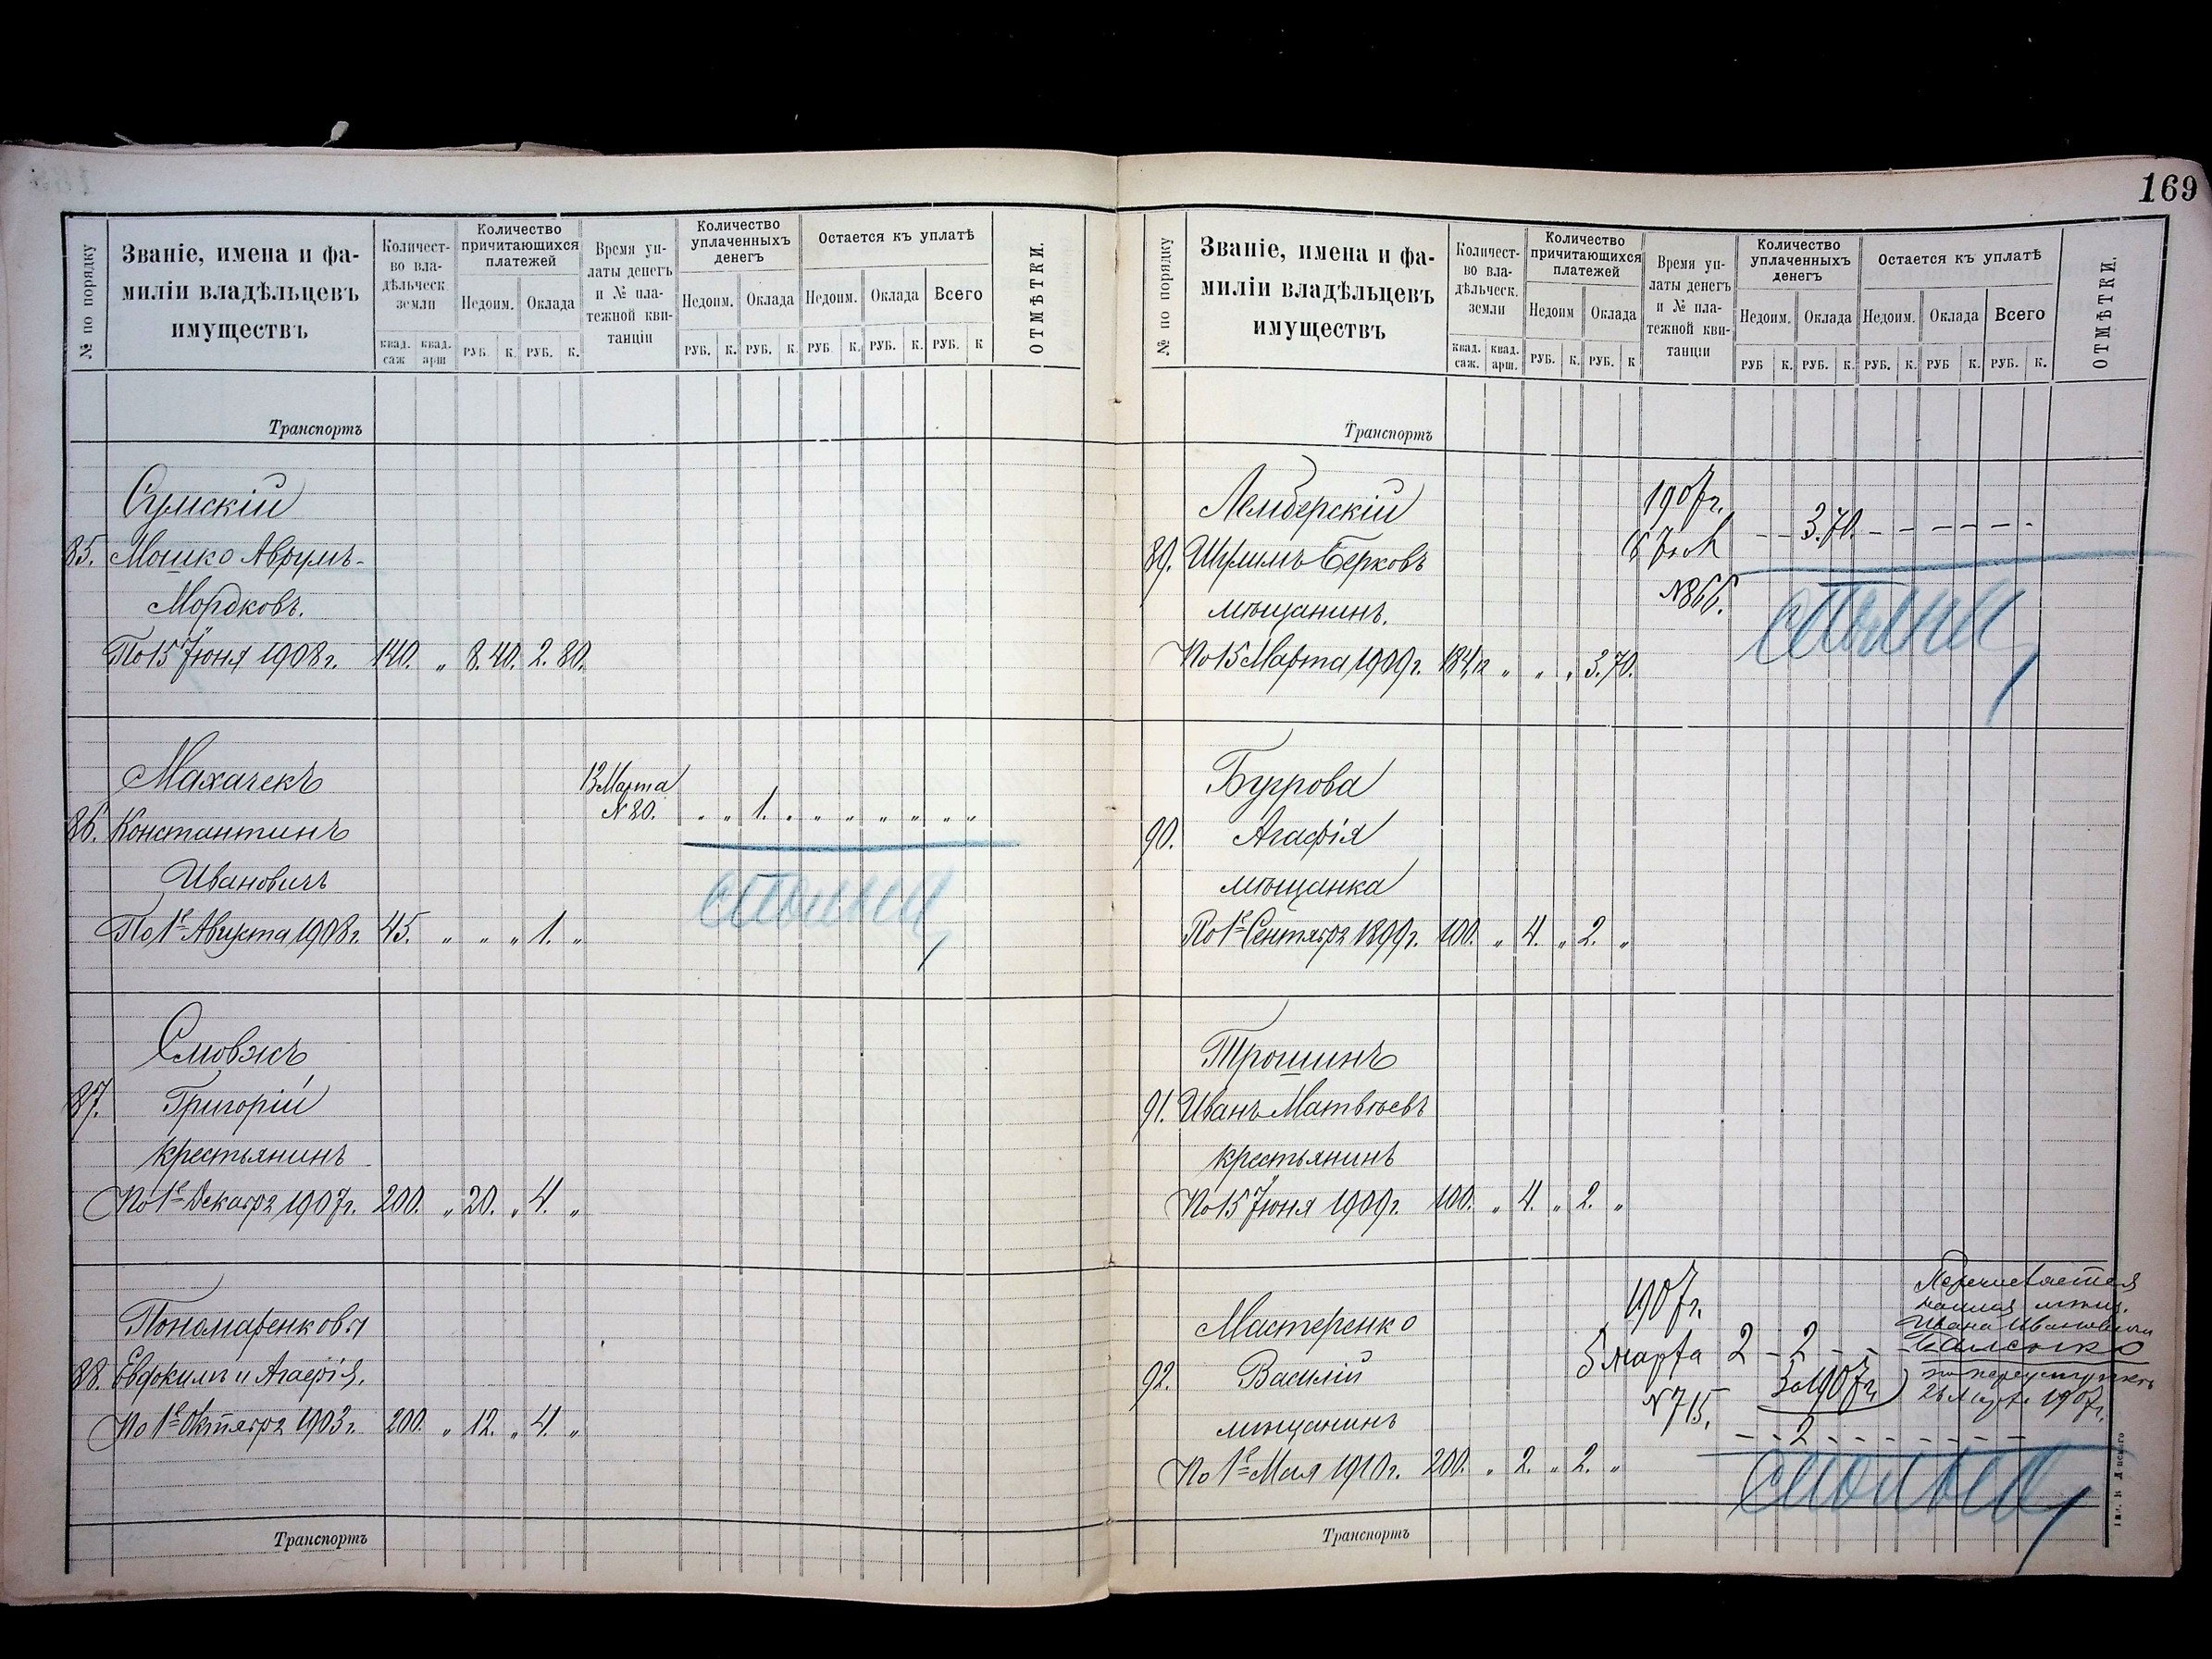 169
№ по порядку
Званіе, имена и фа-
миліи владѣльцевъ
имуществъ
Количест-
во вла-
дѣльческ.
земли
квад. саж.
квад. арш
Количество
причитающихся
платежей
Недоим. Оклада
РУБ. К. РУБ. К.
Время уп-
латы денегъ
и № пла-
тежной кви-
танціи
Количество
уплаченныхъ
денегъ
Недоим. Оклада
РУБ. К. РУБ. К.
Остается къ уплатѣ
Недоим. Оклада Всего
РУБ. К. РУБ. К. РУБ. К
ОТМѢТКИ.
Транспортъ
Сумскій
85. Мошко Аврумъ-
Мордковъ.
По 15 Іюня 1908 г. 140. „ 8. 40. 2. 80.
Махачекъ
13 Марта
№ 80. „ „ 1. „ „ „ „ „ „ „
86. Константинъ
Ивановичъ
По 1е Августа 1908 г. 45. „ „ „ 1. „
Смовжъ
87. Григорій
крестьянинъ
По 1е Декабря 1907 г. 200. „ 20. „ 4. „
Пономаренковы
88. Евдокимъ и Агафія.
По 1е Октября 1903 г. 200. „ 12. „ 4. „
Транспортъ
№ по порядку
Званіе, имена и фа-
миліи владѣльцевъ
имуществъ
Количест-
во вла-
дѣльческ.
земли
квад. саж.
квад. арш.
Количество
причитающихся
платежей
Недоим Оклада
РУБ. К. РУБ. К
Время уп-
латы денегъ
и № пла-
тежной кви-
танціи
Количество
уплаченныхъ
денегъ
Недоим. Оклада
РУБ К. РУБ. К.
Остается къ уплатѣ
Недоим. Оклада Всего
РУБ. К. РУБ К. РУБ. К.
ОТМѢТКИ.
Транспортъ
Лемберскій
1907 г.
- - 3.70. - - - - - -
89. Шулимъ Берковъ
мѣщанинъ.
№ 866.
По 15 Марта 1909 г. 184,12 „ „ „ 3.70.
Бугрова
90. Агафія
мѣщанка
По 1е Сентября 1899 г. 100. „ 4. „ 2. „
Трошинъ
91. Иванъ Матвѣевъ
крестьянинъ
По 15 Іюня 1909 г. 100. „ 4. „ 2. „
Мастеренко
1907 г.
5 марта 2 - 2 - -
92. Василій
№ 715.
За 1907 г.
мѣщанинъ
- - 2 - - - - - - -
По 1е Мая 1910 г. 200. „ 2. „ 2. „
Перечисляется
Ивана Ивановича
1907 г.
Транспортъ